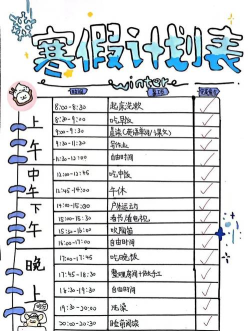 寒假计划表
winter
时间
完成情况
上午
8:00-8:30 起床洗漱
8:30-9:00 吃早饭
9:00-9:30
9:30-11:30 写作业
11:30-12:00 自由时间
中午
12:00-12:45 吃中饭
12:45-14:00 午休
下午
14:00-15:00 户外运动
15:00-15:30 看长江电视
15:30-16:00 吹陶笛
16:00-17:00 自由时间
晚上
17:00-17:45 吃晚饭
17:45-18:30
18:30-19:30 自由时间
19:30-20:00 洗澡
20:00-20:30 睡前阅读